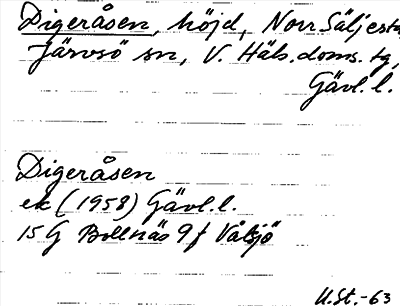 Digeråsen, höjd, Norr Säljesta,
Järvsö sn, V. Häls. doms. tg,
Gävl. l.
Digeråsen
ek (1958) Gävl. l.
15 G Bollnäs 9 f Vålsjö
U. St. -63